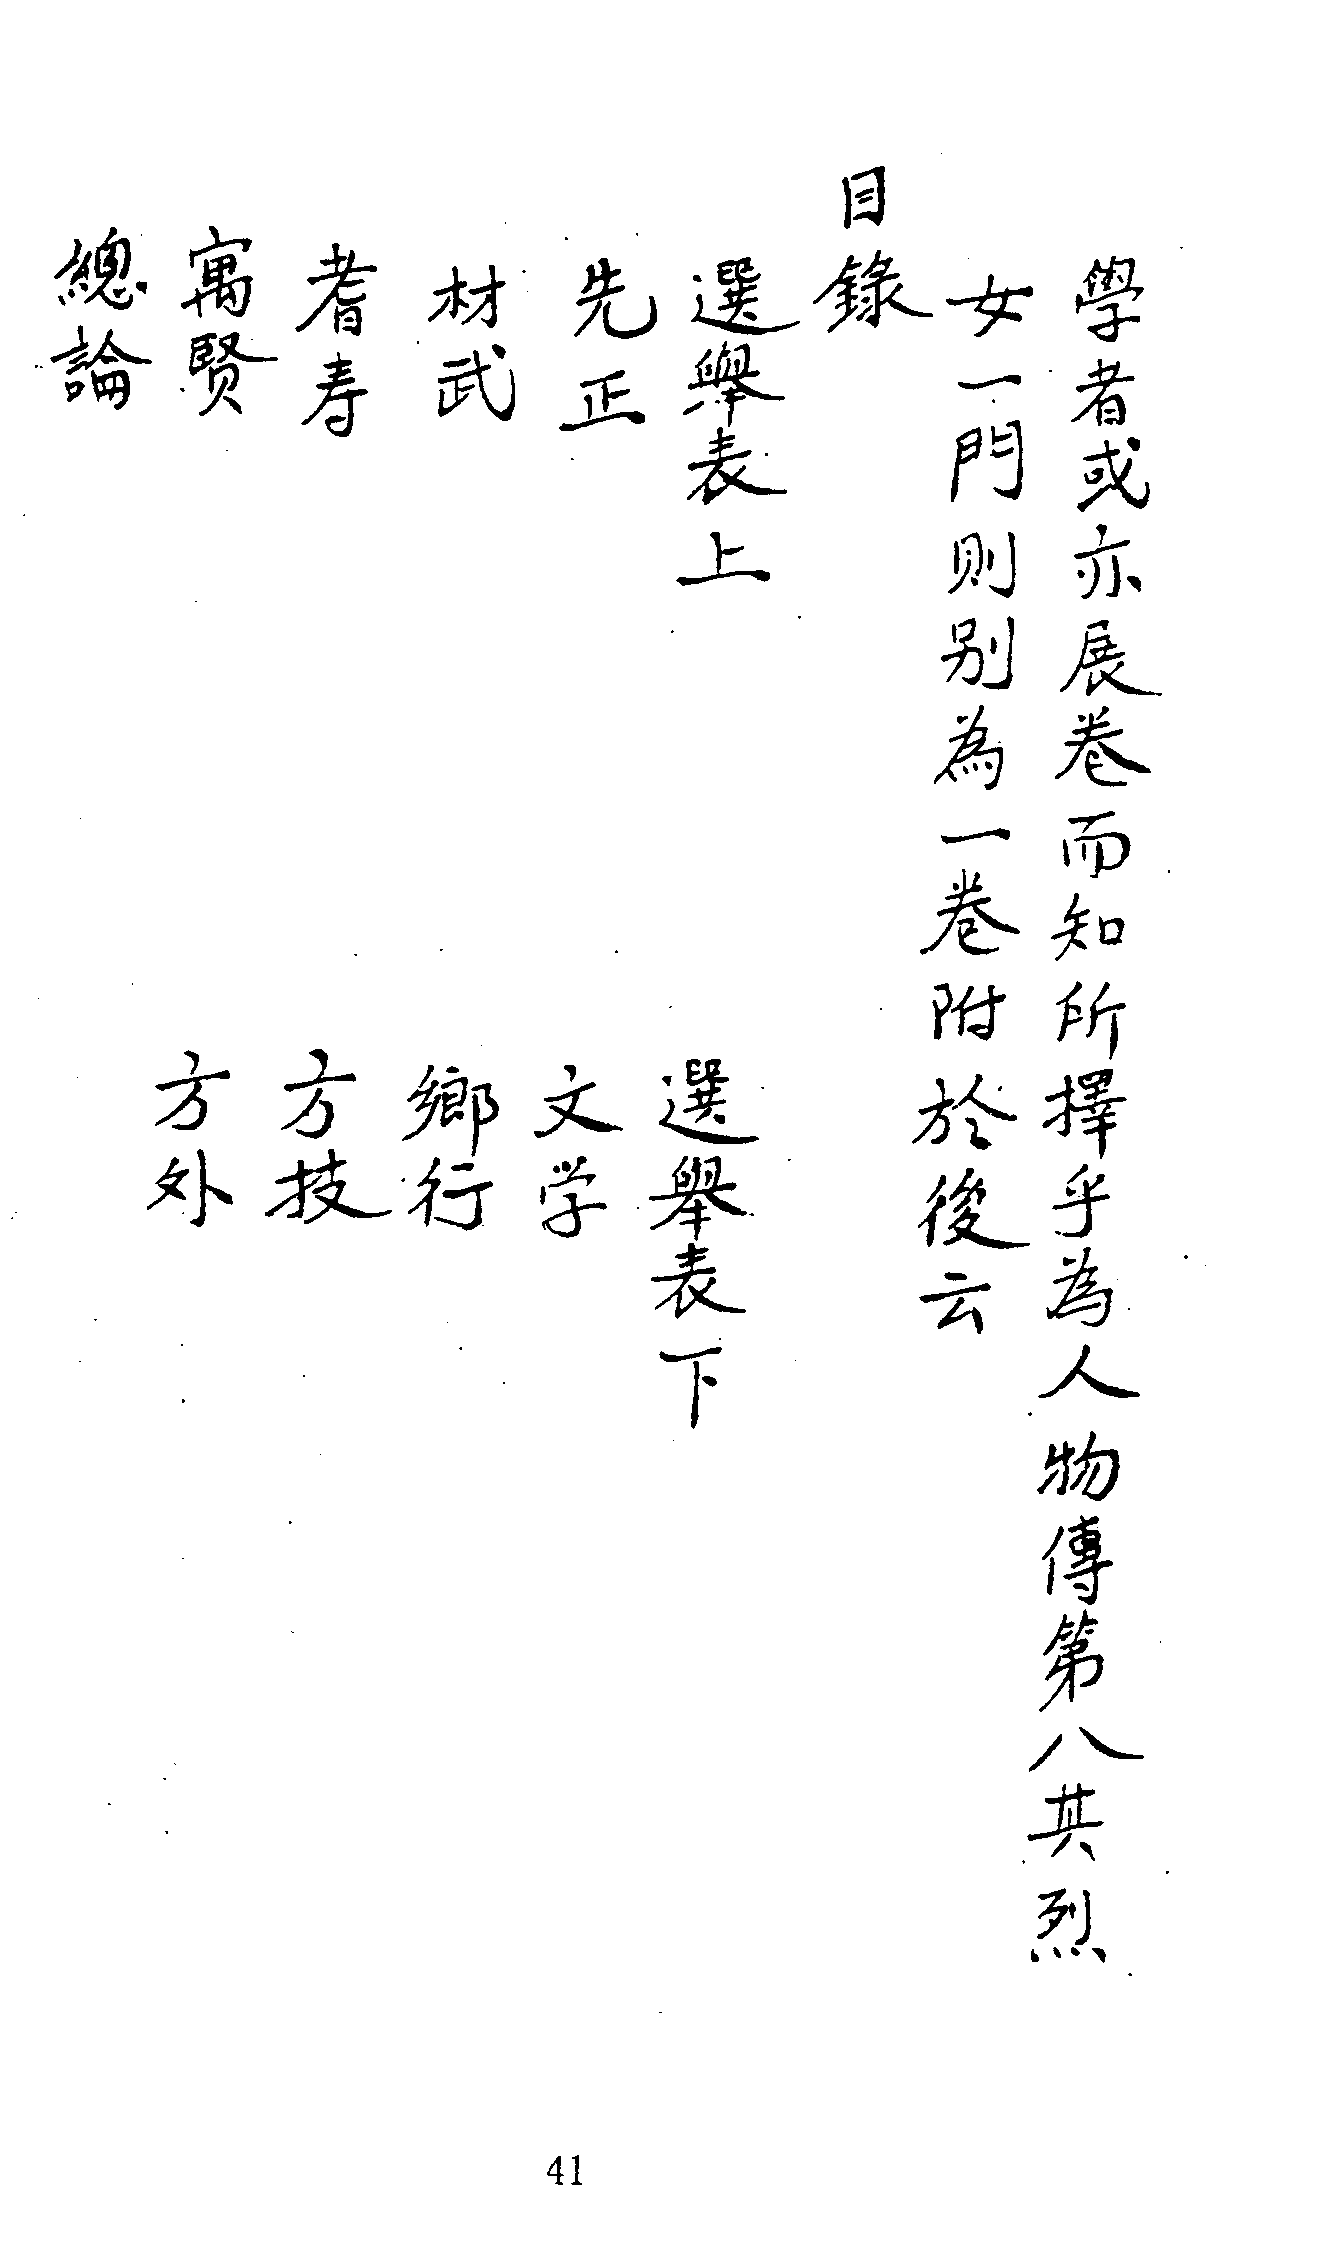 學者或亦展卷而知所擇乎為人物傳第八其烈
女一門则别為一卷附於後云
目錄
選舉表上
選舉表下
先正
文学
材武
鄉行
耆寿
方技
寓贤
方外
總論
41